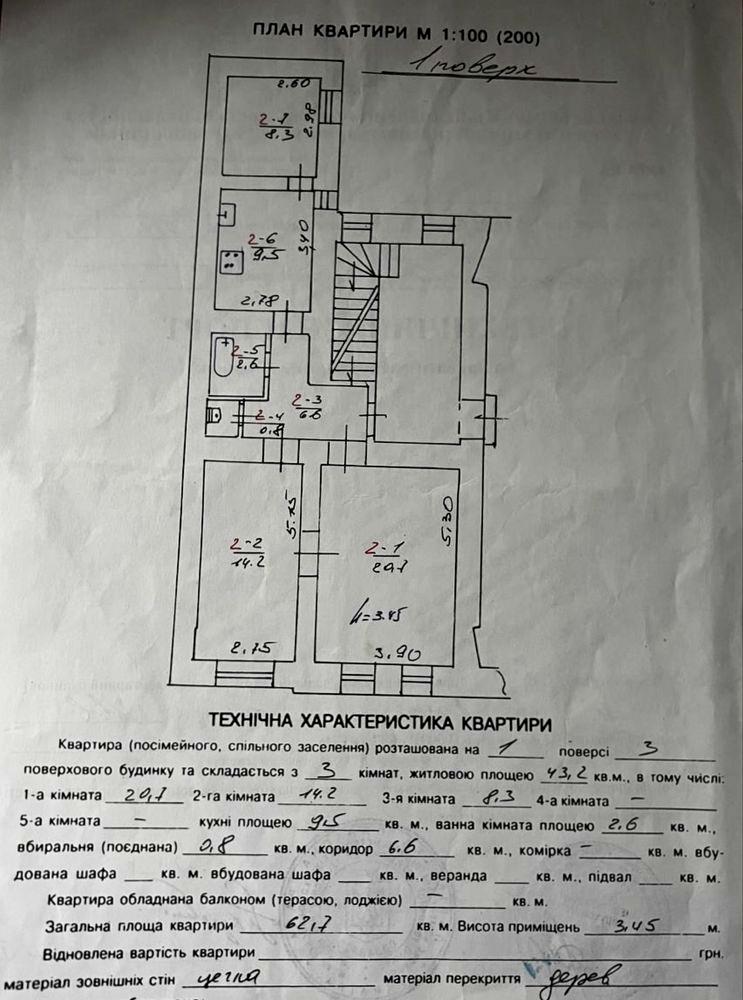 ПЛАН КВАРТИРИ М 1:100 (200)
1 поверх
2.60
2-7
8.3
2.98
2-6
9,5
3,40
2,78
2-5
2.6
2-3
6.6
2-4
0.8
5.15
5,30
2-2
14.2
2-1
20.7
h=3.45
2.75
3.90
ТЕХНІЧНА ХАРАКТЕРИСТИКА КВАРТИРИ
Квартира (посімейного, спільного заселення) розташована на 1 поверсі 3
поверхового будинку та складається з 3 кімнат, житловою площею 43,2 кв.м., в тому числі:
1-а кімната 20,7 2-га кімната 14.2 3-я кімната 8,3 4-а кімната —
5-а кімната — кухні площею 9,5 кв. м., ванна кімната площею 2.6 кв. м.,
вбиральня (поєднана) 0,8 кв. м., коридор 6.6 кв. м., комірка — кв. м. вбу-
дована шафа ___ кв. м. вбудована шафа ___ кв. м., веранда ___ кв. м., підвал ___ кв. м.
Квартира обладнана балконом (терасою, лоджією) — кв. м.
Загальна площа квартири 62,7 кв. м. Висота приміщень 3,45 м.
Відновлена вартість квартири ___ грн.
матеріал зовнішніх стін цегла матеріал перекриття дерев